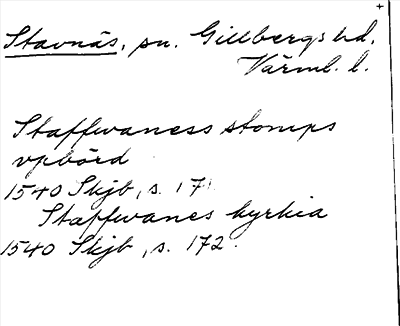 +
Stavnäs, sn. Gillbergs hd,
Värml. l.
Staffwaness stomps
vpbörd
1540 Skjb, s. 171.
Staffwanes kyrkia
1540 Skjb, s. 172.